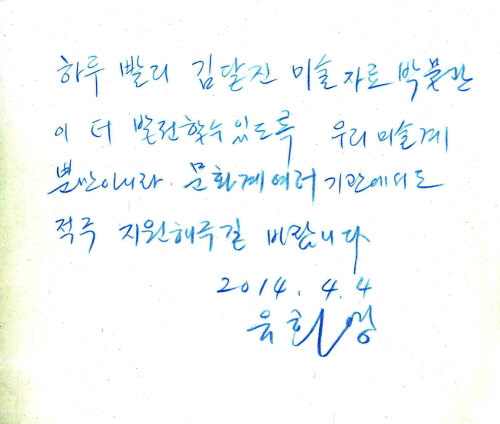 하루 빨리 김달진 미술자료박물관
이 더 발전할수있도록 우리미술계
뿐만아니라 문화계여러기관에서도
적극 지원해주길 바랍니다
2014. 4. 4